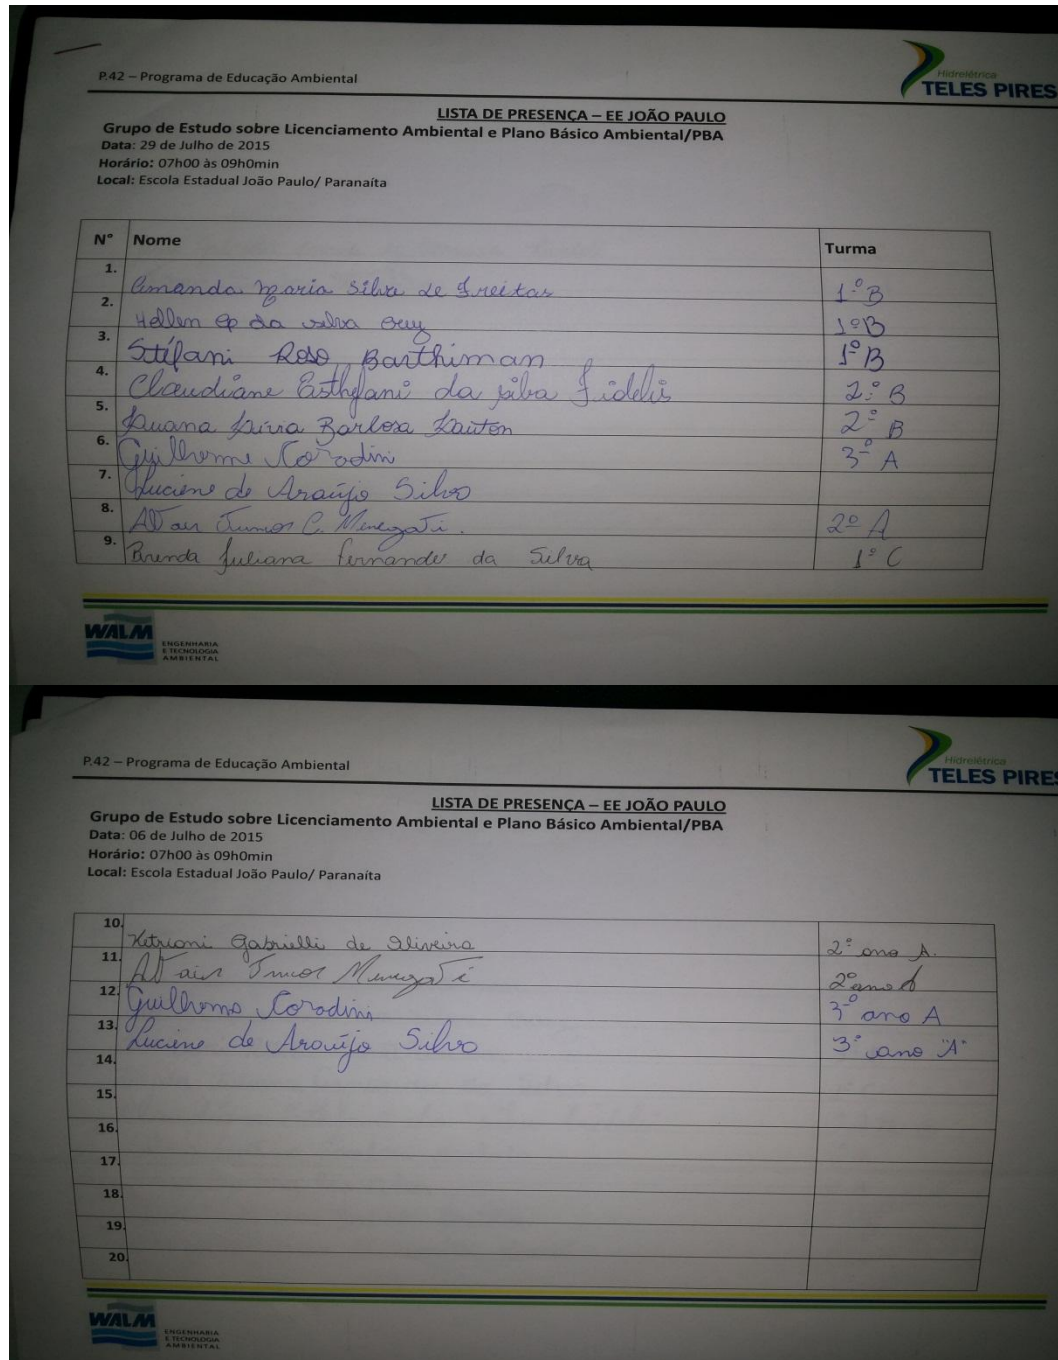 P.42 – Programa de Educação Ambiental
Hidrelétrica
TELES PIRES
LISTA DE PRESENÇA – EE JOÃO PAULO
Grupo de Estudo sobre Licenciamento Ambiental e Plano Básico Ambiental/PBA
Data: 29 de Julho de 2015
Horário: 07h00 às 09h0min
Local: Escola Estadual João Paulo/ Paranaíta
N° Nome Turma
1. Amanda Maria Silva de Freitas 1º B
2. Hellen da silva 1º B
3. Stéfani Roso Barthiman 1º B
4. Claudiane Esthefani da silva Fidelis 2º B
5. Luana Barbosa 2º B
6. Guilherme Coradini 3º A
7. Luciene de Araújo Silva
8. Altair Junior C. Menegati. 2º A
9. Brenda Juliana Fernandes da Silva 1º C
WALM
ENGENHARIA
E TECNOLOGIA
AMBIENTAL
P.42 – Programa de Educação Ambiental
Hidrelétrica
TELES PIRES
LISTA DE PRESENÇA – EE JOÃO PAULO
Grupo de Estudo sobre Licenciamento Ambiental e Plano Básico Ambiental/PBA
Data: 06 de Julho de 2015
Horário: 07h00 às 09h0min
Local: Escola Estadual João Paulo/ Paranaíta
10. Gabrielli de Oliveira 2º ano A.
11. Altair Junior Menegati 2º ano A
12. Guilherme Coradini 3º ano A
13. Luciene de Araújo Silva 3º ano "A"
14.
15.
16.
17.
18.
19.
20.
WALM
ENGENHARIA
E TECNOLOGIA
AMBIENTAL